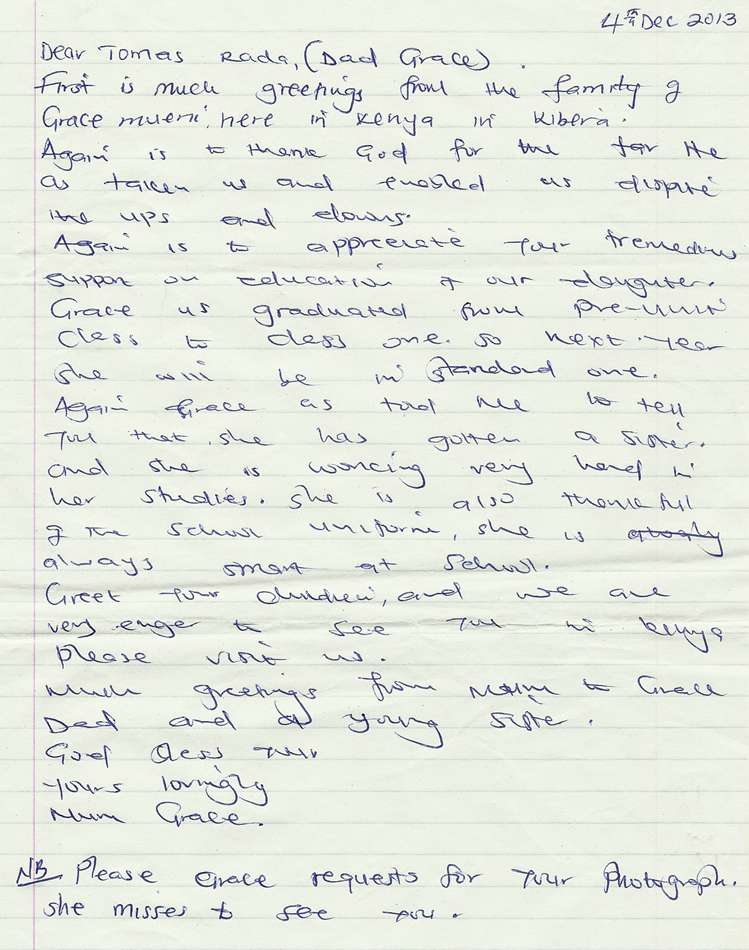 4th Dec 2013
Dear Tomas Rada, (Dad Grace).
First is much greetings from the family of
Grace mueni, here in Kenya in Kibera.
Again is to thank God for the far He
as taken us and enabled us dispite
the ups and downs.
Again is to appreciate your tremedous
support on education of our daughter.
Grace us graduated from pre-unit
class to class one. so next year
she will be in standard one.
Again Grace as told me to tell
you that she has gotten a sister.
and she is working very hard in
her studies. she is also thankful
of the school uniform, she is
always smart at school.
Greet your children, and we are
very enger to see you in kenya
please visit us.
Much greetings from Mum to Grace
Dad and a young siste.
God bless your
yours lovingly
Mum Grace.
NB Please Grace requests for your photograph.
she misses to see you.